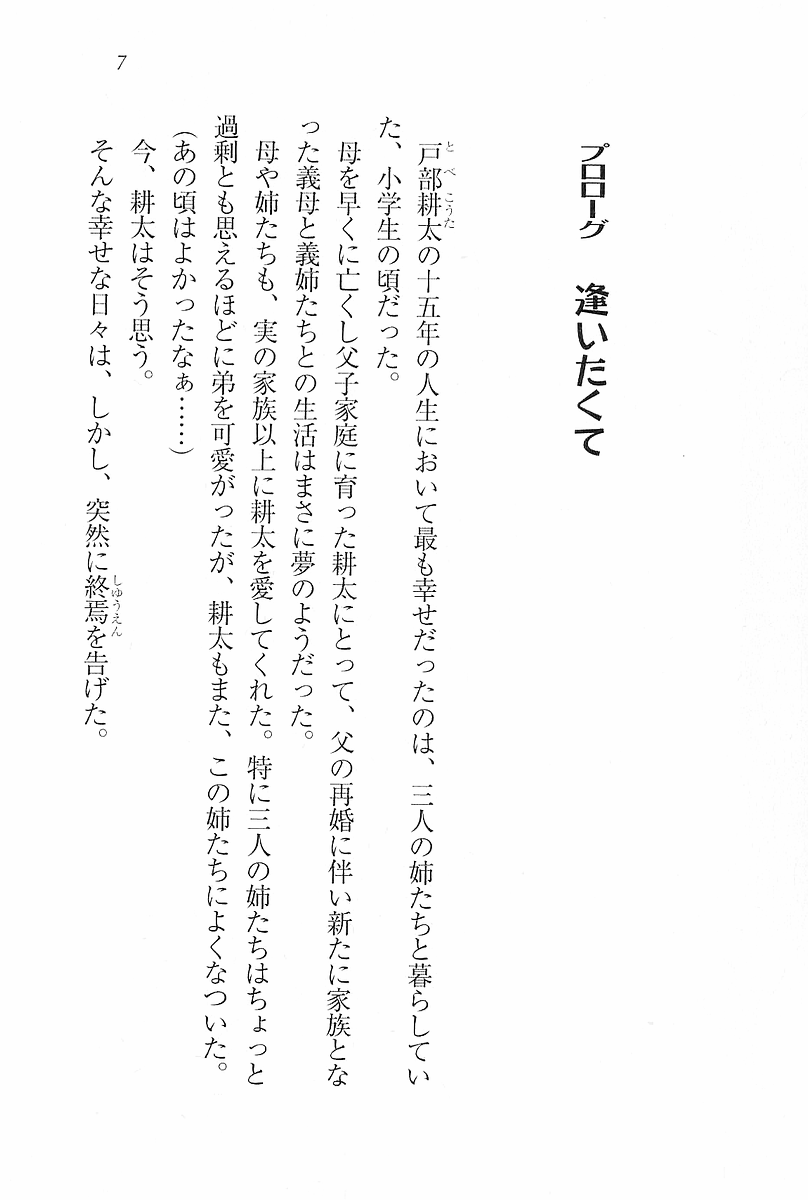 7
プロローグ　逢いたくて
戸部耕太の十五年の人生において最も幸せだったのは、三人の姉たちと暮らしてい
た、小学生の頃だった。
母を早くに亡くし父子家庭に育った耕太にとって、父の再婚に伴い新たに家族とな
った義母と義姉たちとの生活はまさに夢のようだった。
母や姉たちも、実の家族以上に耕太を愛してくれた。特に三人の姉たちはちょっと
過剰とも思えるほどに弟を可愛がったが、耕太もまた、この姉たちによくなついた。
（あの頃はよかったなぁ……）
今、耕太はそう思う。
そんな幸せな日々は、しかし、突然に終焉を告げた。